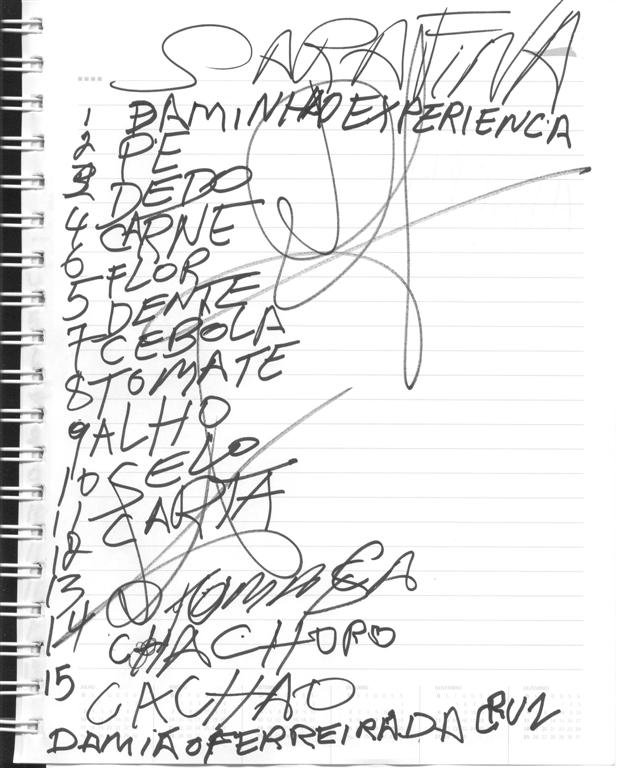 SARAFINA
1 DAMINHAO EXPERIENCA
2 PE
3 DEDO
4 CARNE
6 FLOR
5 DENTE
7 CEBOLA
8 TOMATE
9 ALHO
10 SELO
11 CARTA
12
13
14 CHACHORO
15 CACHAO
DAMIÃO FERREIRA DA CRUZ